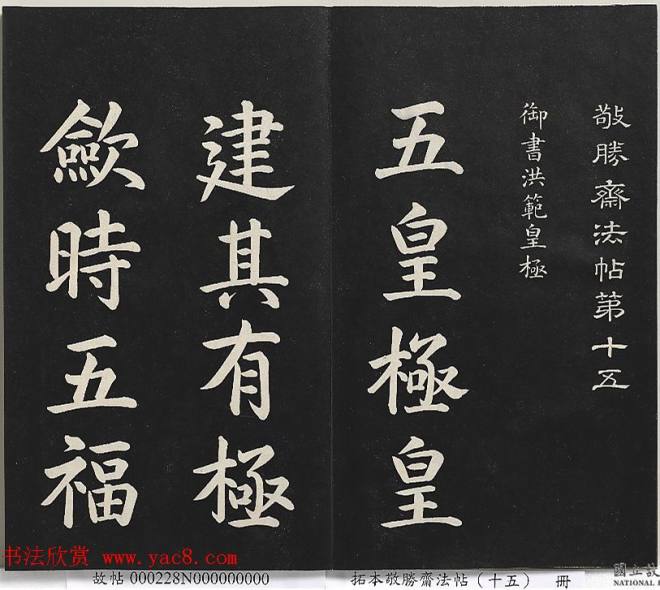 敬勝齋法帖第十五
御書洪範皇極
五皇極皇
建其有極
歛時五福
书法欣赏 www.yac8.com
故帖 000228N000000000
拓本敬勝齋法帖（十五） 冊
國立故
NATIONAL